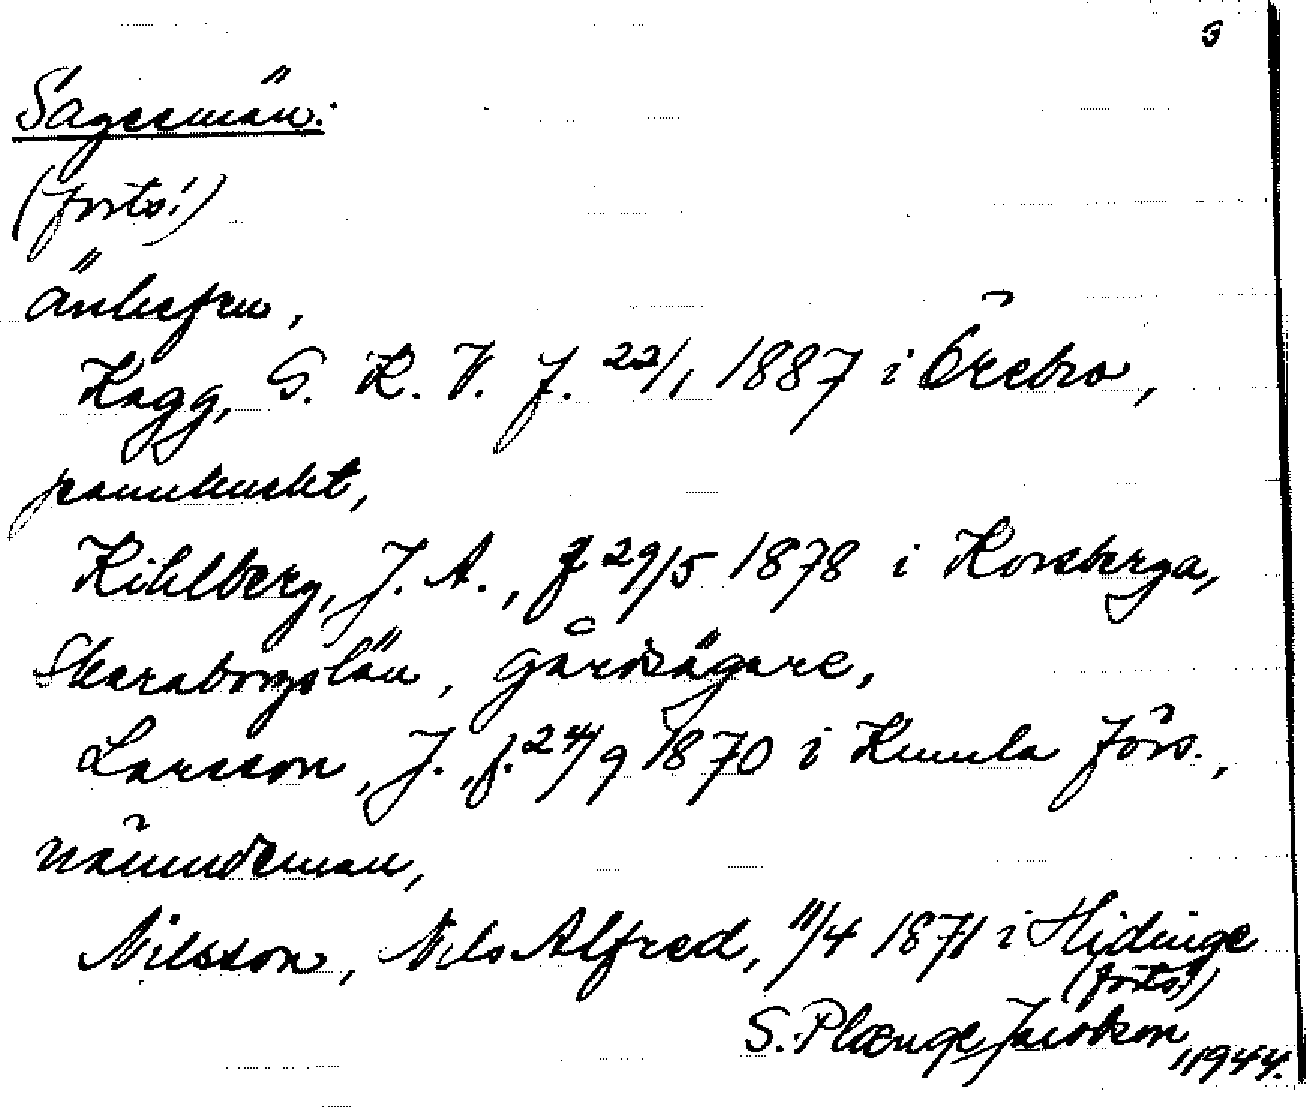 3
Sagesmän:
(forts!)
änkefru,
Kagg, G. K. V. f. 22/1 1887 i Örebro,
pannknekt,
Kihlberg, J. A., f 29/5 1878 i Korsberga,
Skaraborgslän, gårdsägare,
Larsson, J., f. 24/9 1870 i Kumla förs.,
nämndeman,
Nilsson, Nils Alfred, 11/4 1871 i Hidinge
(forts!)
S. Plænge Jacobson 1944.